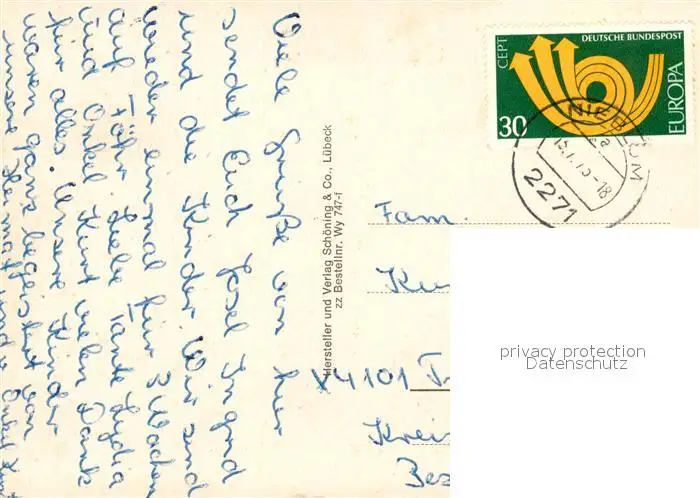 Viele Grüße von hier
sendet Euch Josel Ingrid
und die Kinder Wir sind
wieder einmal für 3 Wochen
auf Föhr Liebe Tante Lydia
und Onkel Kurt vielen Dank
für alles. Unsere Kinder
waren ganz begeistert von
unsere Heimat und v. Onkel Kurt
Hersteller und Verlag Schöning & Co., Lübeck
zz Bestellnr. Wy 747-f
CEPT
DEUTSCHE BUNDESPOST
EUROPA
30
NIEBLUM
a
-18
2271
Fam.
X4101
Bes
privacy protection
Datenschutz